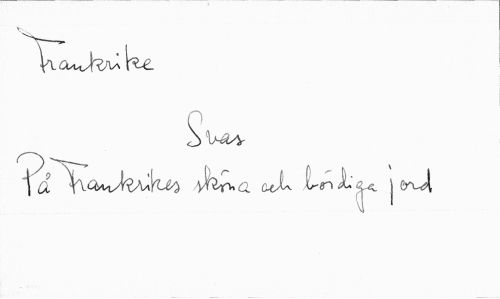 Frankrike
Svas
På Frankrikes sköna och bördiga jord